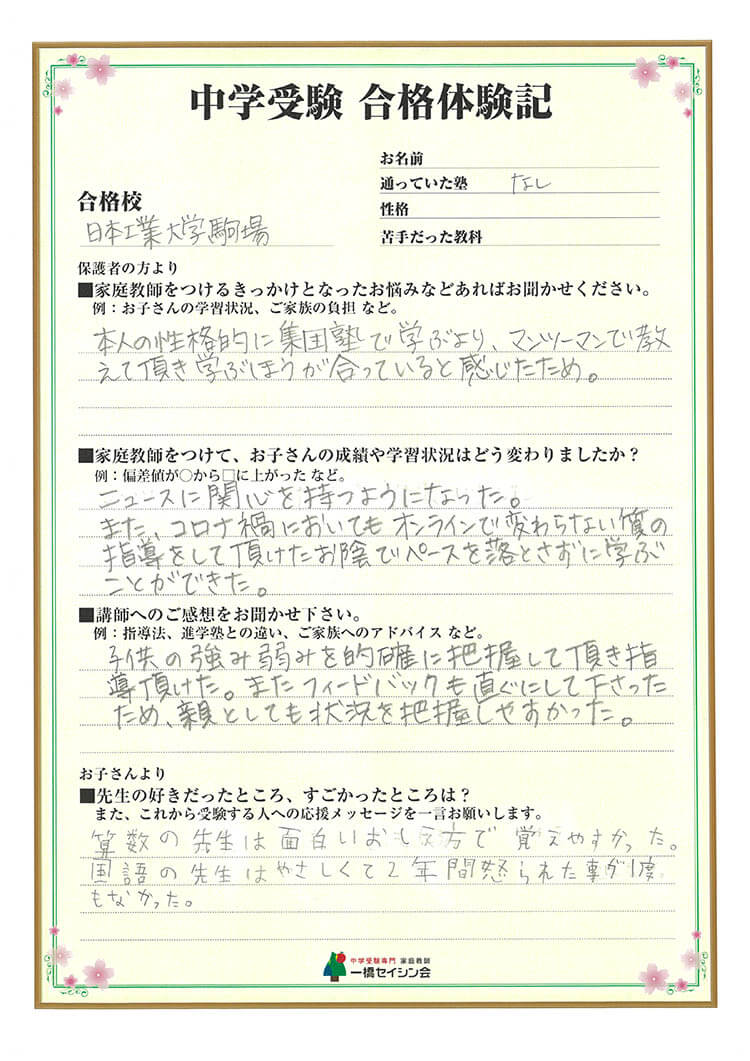 中学受験 合格体験記
お名前
通っていた塾 なし
合格校
性格
日本工業大学駒場
苦手だった教科
保護者の方より
■家庭教師をつけるきっかけとなったお悩みなどあればお聞かせください。
例：お子さんの学習状況、ご家族の負担 など。
本人の性格的に集団塾で学ぶより、マンツーマンで教
えて頂き学ぶほうが合っていると感じたため。
■家庭教師をつけて、お子さんの成績や学習状況はどう変わりましたか？
例：偏差値が○から□に上がった など。
ニュースに関心を持つようになった。
また、コロナ禍においてもオンラインで変わらない質の
指導をして頂けたお陰でペースを落とさずに学ぶ
ことができた。
■講師へのご感想をお聞かせ下さい。
例：指導法、進学塾との違い、ご家族へのアドバイス など。
子供の強み弱みを的確に把握して頂き指
導頂けた。またフィードバックも直ぐにして下さった
ため、親としても状況を把握しやすかった。
お子さんより
■先生の好きだったところ、すごかったところは？
また、これから受験する人への応援メッセージを一言お願いします。
算数の先生は面白いおしえ方で覚えやすかった。
国語の先生はやさしくて2年間怒られた事が1度
もなかった。
中学受験専門 家庭教師
一橋セイシン会